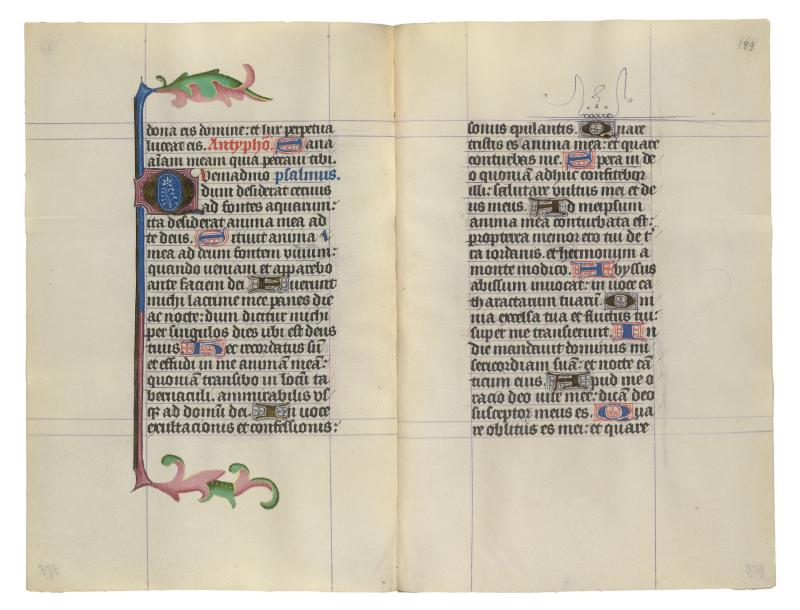 dona eis domine: et lux perpetua
luceat eis. Antypho. Sana
aīam meam quia peccaui tibi.
Quemadmo psalmus.
dum desiderat ceruus
ad fontes aquarum:
ita desiderat anima mea ad
te deus. Sitiuit anima
mea ad deum fontem viuum:
quando veniam et apparebo
ante faciem dei. Fuerunt
michi lacrime mee panes die
ac nocte: dum dicitur michi
per singulos dies vbi est deus
tuus. Hec recordatus sū
et effudi in me animam meā:
quoniā transibo in locū ta
bernaculi. ammirabilis vs
qz ad domū dei. In uoce
exultacionis et confessionis:
189
sonus epulantis. Quare
tristis es anima mea: et quare
conturbas me. Spera in de
o quoniam adhuc confitebor
illi: salutare vultus mei et de
us meus. Ad meipsum
anima mea conturbata est:
propterea memor ero tui de t'
ra iordanis. et hermonium a
monte modico. Abyssus
abissum inuocat: in uoce ca
tharactarum tuarū. Om
nia excelsa tua et fluctus tui:
super me transierunt. In
die mandauit dominus mi
sericordiam suā: et nocte cā
ticum eius. Apud me o
racio deo uite mee: dicā deo
susceptor meus es. Qua
re oblitus es mei: et quare
379